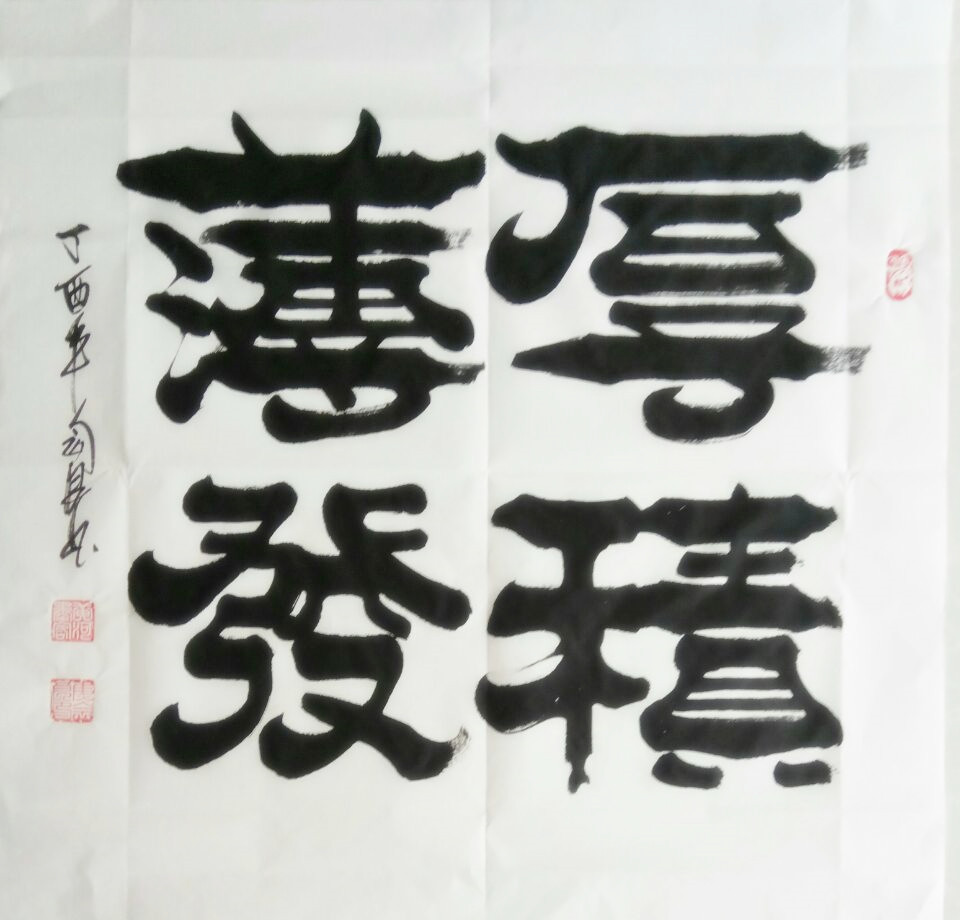 厚積
薄發
丁酉年